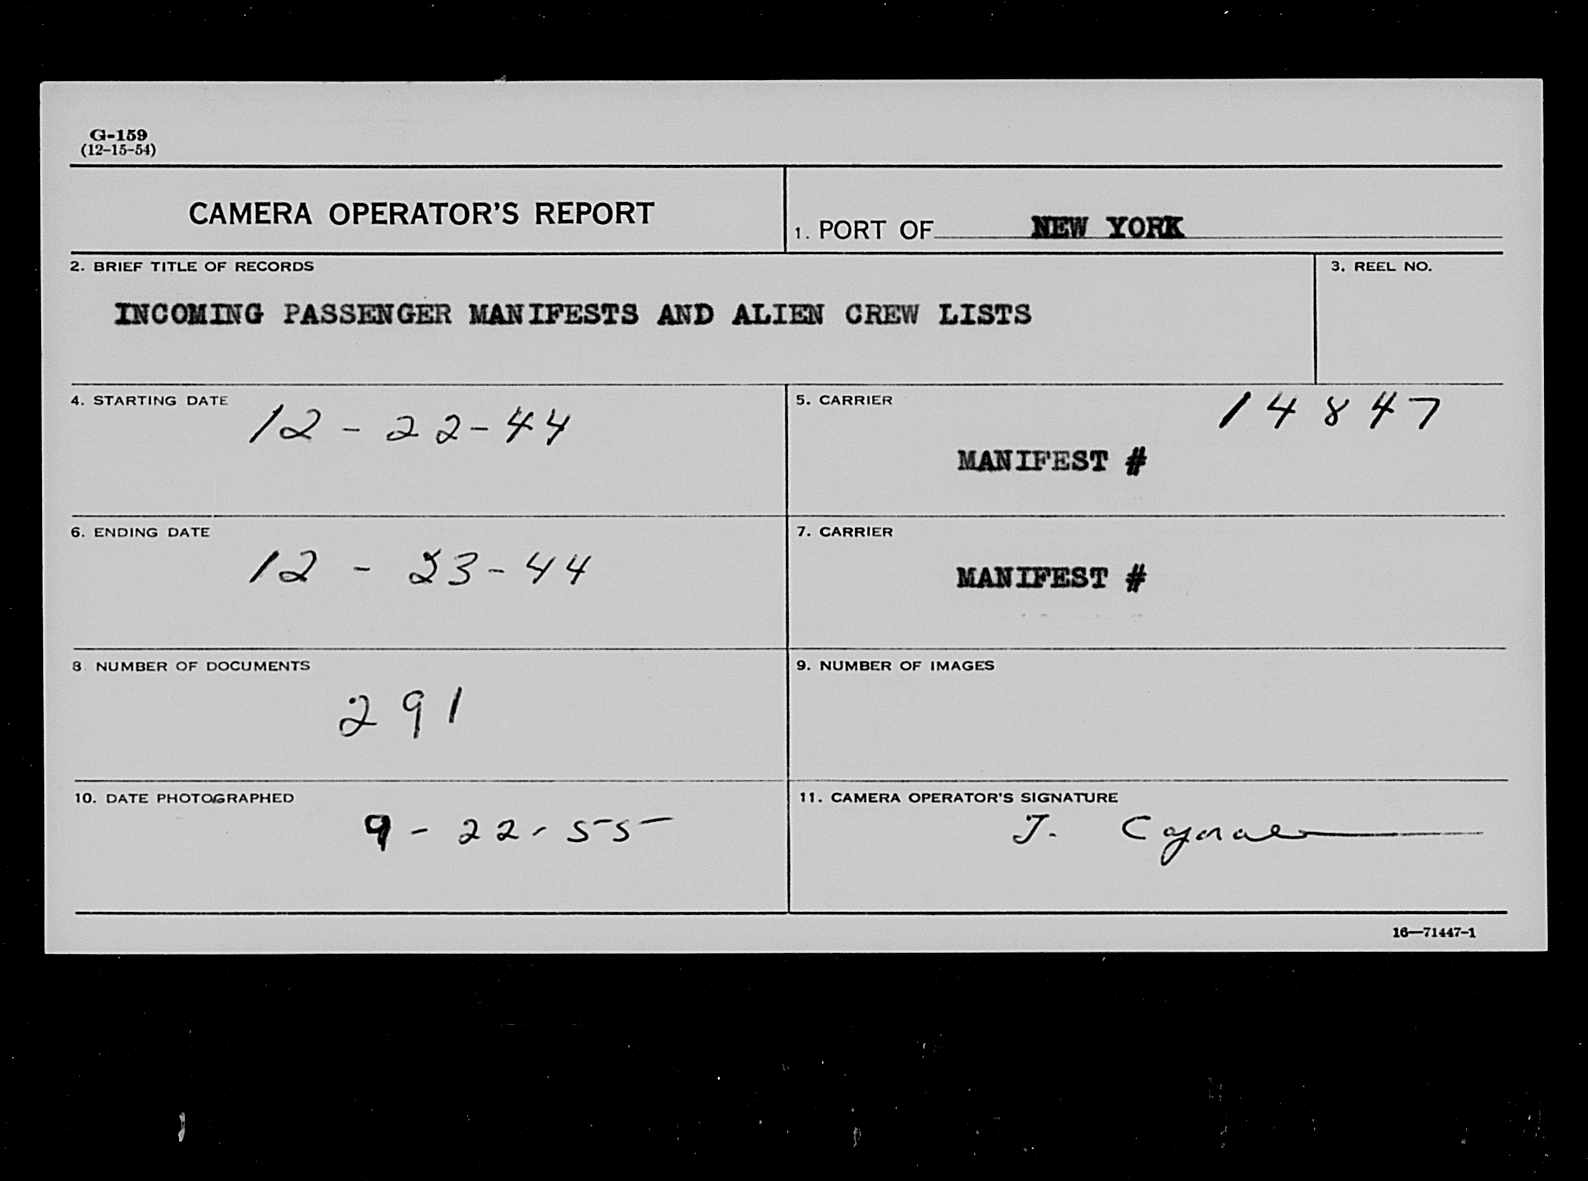 G-159
(12-15-54)
CAMERA OPERATOR'S REPORT
1. PORT OF NEW YORK
2. BRIEF TITLE OF RECORDS
INCOMING PASSENGER MANIFESTS AND ALIEN CREW LISTS
3. REEL NO.
4. STARTING DATE
12 - 22 - 44
5. CARRIER
14847
MANIFEST #
6. ENDING DATE
12 - 23 - 44
7. CARRIER
MANIFEST #
8 NUMBER OF DOCUMENTS
291
9. NUMBER OF IMAGES
10. DATE PHOTOGRAPHED
9 - 22 - 55
11. CAMERA OPERATOR'S SIGNATURE
J.
16—71447-1